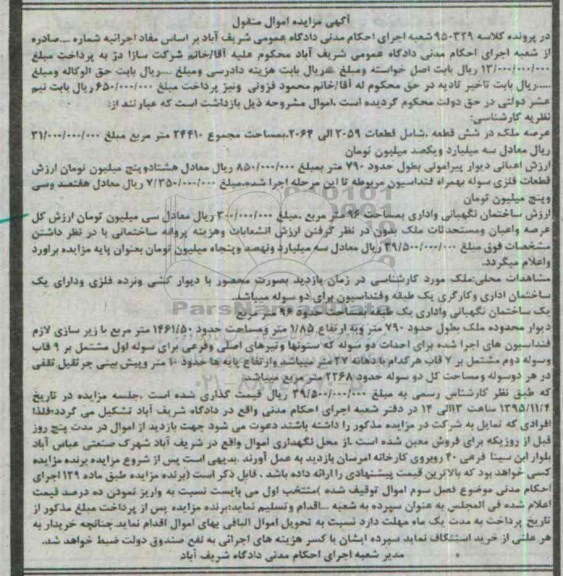 آگهی مزایده اموال منقول
در پرونده کلاسه ۹۵۰۳۲۹ شعبه اجرای احکام مدنی دادگاه عمومی شریف آباد بر اساس مفاد اجرائیه شماره ...صادره
از شعبه اجرای احکام مدنی دادگاه عمومی شریف آباد محکوم علیه آقا/خانم شرکت سازا دژ به پرداخت مبلغ
۱۳/۰۰۰/۰۰۰/۰۰۰ ریال بابت اصل خواسته ومبلغ ریال بابت هزینه دادرسی ومبلغ ....ریال بابت حق الوکاله ومبلغ
....ریال بابت تاخیر تادیه در حق محکوم له آقا/خانم محمود فزونی ونیز پرداخت مبلغ ۶۵۰/۰۰۰/۰۰۰ ریال بابت نیم
عشر دولتی در حق دولت محکوم گردیده است ،اموال مشروحه ذیل بازداشت است که عبارتند از:
نظریه کارشناسی:
عرصه ملک در شش قطعه ،شامل قطعات ۲۰۵۹ الی ۲۰۶۴،بمساحت مجموع ۲۴۴۱۰ متر مربع مبلغ ۳۱/۰۰۰/۰۰۰/۰۰۰
ریال معادل سه میلیارد ویکصد میلیون تومان
ارزش اعیانی دیوار پیرامونی بطول حدود ۷۹۰ متر بمبلغ ۸۵۰/۰۰۰/۰۰۰ ریال معادل هشتادوپنج میلیون تومان ارزش
قطعات فلزی سوله بهمراه فنداسیون مربوطه تا این مرحله اجرا شده،مبلغ ۷/۳۵۰/۰۰۰/۰۰۰ ریال معادل هفتصد وسی
وپنج میلیون تومان
ارزش ساختمان نگهبانی واداری بمساحت ۹۶ متر مربع ،مبلغ ۳۰۰/۰۰۰/۰۰۰ ریال معادل سی میلیون تومان ارزش کل
عرصه واعیان ومستحدثات ملک بدون در نظر گرفتن ارزش انشعابات وهزینه پروانه ساختمانی با در نظر داشتن
مشخصات فوق مبلغ ۳۹/۵۰۰/۰۰۰/۰۰۰ ریال معادل سه میلیارد ونهصد وپنجاه میلیون تومان بعنوان پایه مزایده براورد
واعلام میگردد.
مشاهدات محلی:ملک مورد کارشناسی در زمان بازدید بصورت محصور با دیوار کشی ونرده فلزی ودارای یک
ساختمان اداری وکارگری یک طبقه وفنداسیون برای دو سوله میباشد.
یک ساختمان نگهبانی واداری یک طبقه بمساحت حدود ۹۶ متر مربع
دیوار محدوده ملک بطول حدود ۷۹۰ متر وبه ارتفاع ۱/۸۵ متر ومساحت حدود ۱۴۶۱/۵۰ متر مربع با زیر سازی لازم
فنداسیون های اجرا شده برای احداث دو سوله که ستونها وتیرهای اصلی وفرعی برای سوله اول مشتمل بر ۹ قاب
وسوله دوم مشتمل بر ۷ قاب هرکدام با دهانه ۲۷ متر میباشد وارتفاع پایه ها حدود ۱۰ متر وپیش بینی جرثقیل سقفی
در هر دوسوله ومساحت کل دو سوله حدود ۲۲۶۸ متر مربع میباشد
که طبق نظر کارشناس رسمی به مبلغ ۳۹/۵۰۰/۰۰۰/۰۰۰ ریال قیمت گذاری شده است .جلسه مزایده در تاریخ
۱۳۹۵/۱۱/۴ ساعت ۱۳الی ۱۴ در دفتر شعبه اجرای احکام مدنی واقع در دادگاه شریف آباد تشکیل می گردد،فلذا
افرادی که تمایل به شرکت در مزایده مذکور را داشته باشند دعوت می شود جهت بازدید از اموال در مدت پنج روز
قبل از روزیکه برای فروش معین شده است .از محل نگهداری اموال واقع در شریف آباد شهرک صنعتی عباس آباد
بلوار ابن سینا فرعی ۴۰ روبروی کارخانه امرسان بازدید به عمل آورند .بدیهی است پس از شروع مزایده برنده مزایده
کسی خواهد بود که بالاترین قیمت پیشنهادی را ارائه داده باشد . قابل ذکر است (برنده مزایده طبق ماده ۱۲۹ اجرای
احکام مدنی موضوع فصل سوم اموال توقیف شده )منتخب اول می بایست نسبت به واریز نمودن ده درصد قیمت
اعلام شده فی المجلس به عنوان سپرده به شعبه ...اقدام وتسلیم نماید؛برنده مزایده پس از پرداخت مبلغ مذکور از
تاریخ پرداخت به مدت یک ماه مهلت دارد نسبت به تحویل اموال الباقی بهای اموال اقدام نماید.چنانچه خریدار به
هر علتی از خرید استنکاف نماید سپرده ایشان با کسر هزینه های اجرائی به نفع صندوق دولت ضبط خواهد شد.
مدیر شعبه اجرای احکام مدنی دادگاه شریف آباد